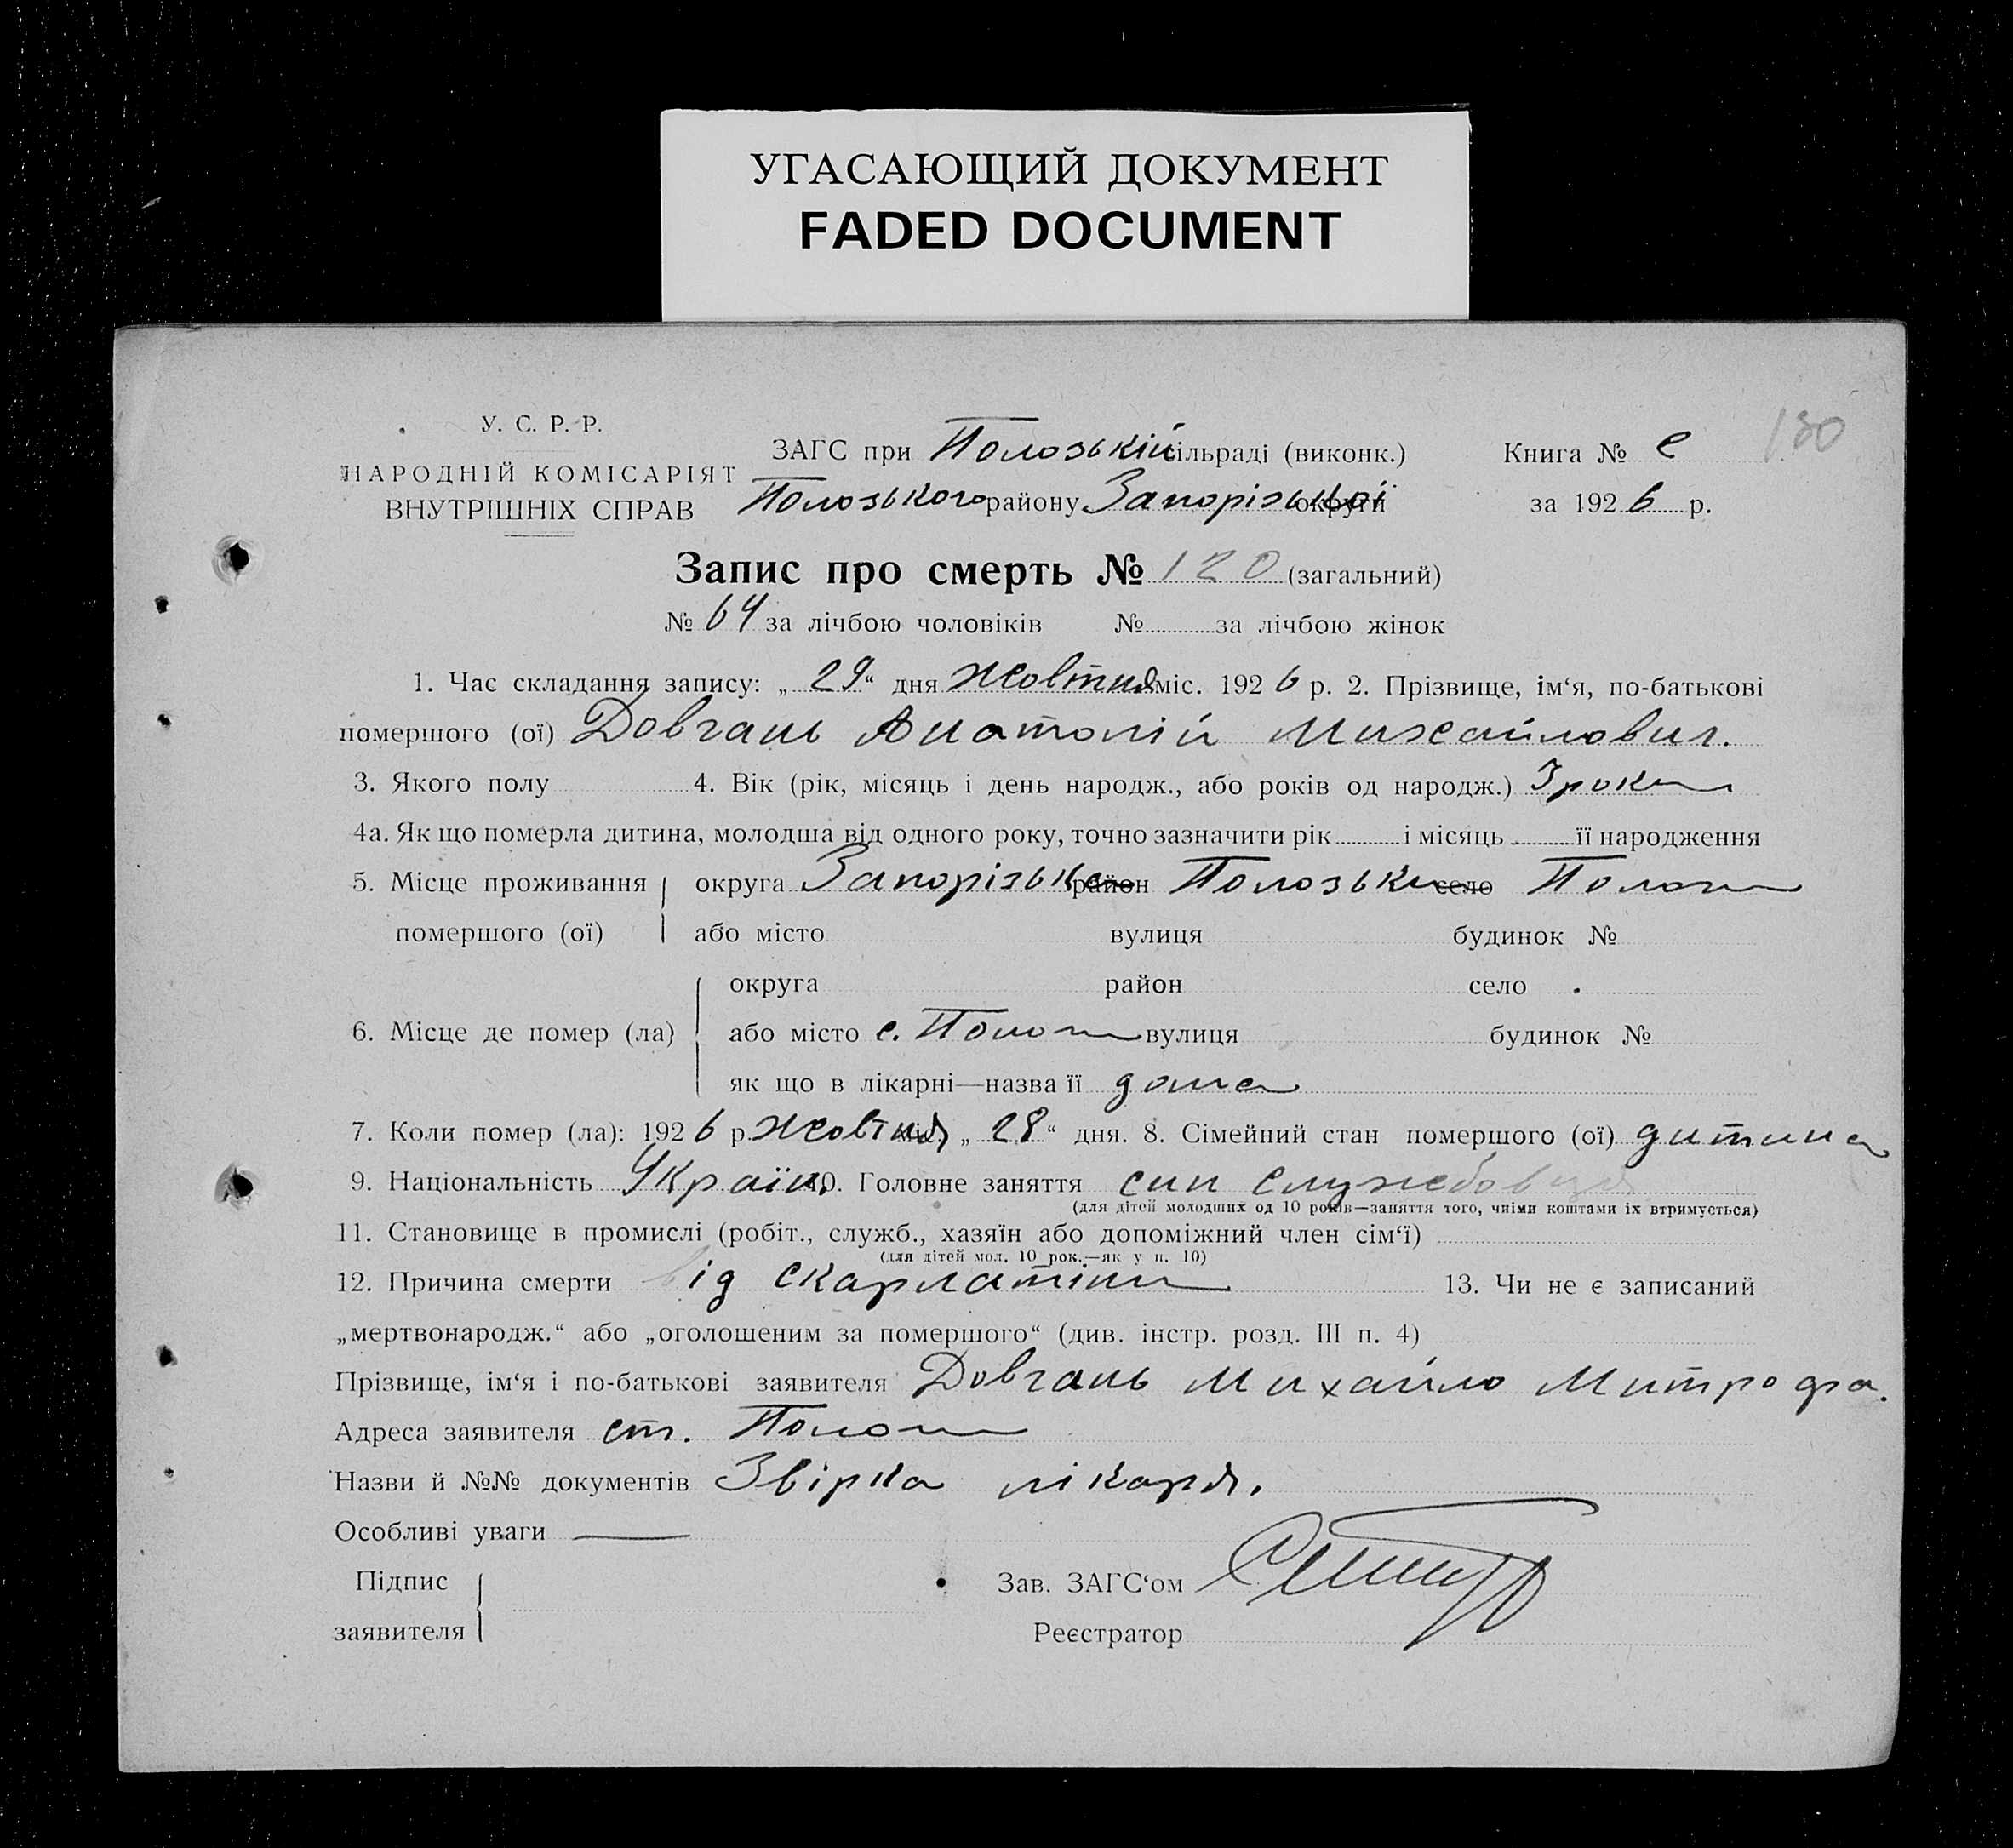 УГАСАЮЩИЙ ДОКУМЕНТ
FADED DOCUMENT
У. С. Р. Р.
НАРОДНІЙ КОМІСАРІЯТ
ВНУТРІШНІХ СПРАВ
ЗАГС при Полозькій сільраді (виконк.)
Полозького району Запорізької округи
Книга № С
за 1926 р.
130
Запис про смерть № 120 (загальний)
№ 64 за лічбою чоловіків № за лічбою жінок
1. Час складання запису: „29“ дня жовтня міс. 1926 р. 2. Прізвище, ім‘я, по-батькові
помершого (ої) Довгань Анатолій Михайлович.
3. Якого полу 4. Вік (рік, місяць і день народж., або років од народж.) 3 роки
4а. Як що померла дитина, молодша від одного року, точно зазначити рік і місяць її народження
5. Місце проживання округа Запорізька район Полозьки село Пологи
помершого (ої) або місто вулиця будинок №
округа район село
6. Місце де помер (ла) або місто с. Пологи вулиця будинок №
як що в лікарні—назва її дома
7. Коли помер (ла): 1926 р. жовтня міс. „28“ дня. 8. Сімейний стан помершого (ої) дитина
9. Національність Україн. 10. Головне заняття син службовця
(для дітей молодших од 10 років—заняття того, чиїми коштами їх втримується)
11. Становище в промислі (робіт., служб., хазяїн або допоміжний член сім‘ї)
(для дітей мол. 10 рок.—як у п. 10)
12. Причина смерти від скарлатіни 13. Чи не є записаний
„мертвонародж.“ або „оголошеним за помершого“ (див. інстр. розд. III п. 4)
Прізвище, ім‘я і по-батькові заявителя Довгань Михайло Митрофа.
Адреса заявителя ст. Пологи
Назви й №№ документів Звірка лікаря.
Особливі уваги —
Підпис
заявителя
Зав. ЗАГС‘ом
Реєстратор